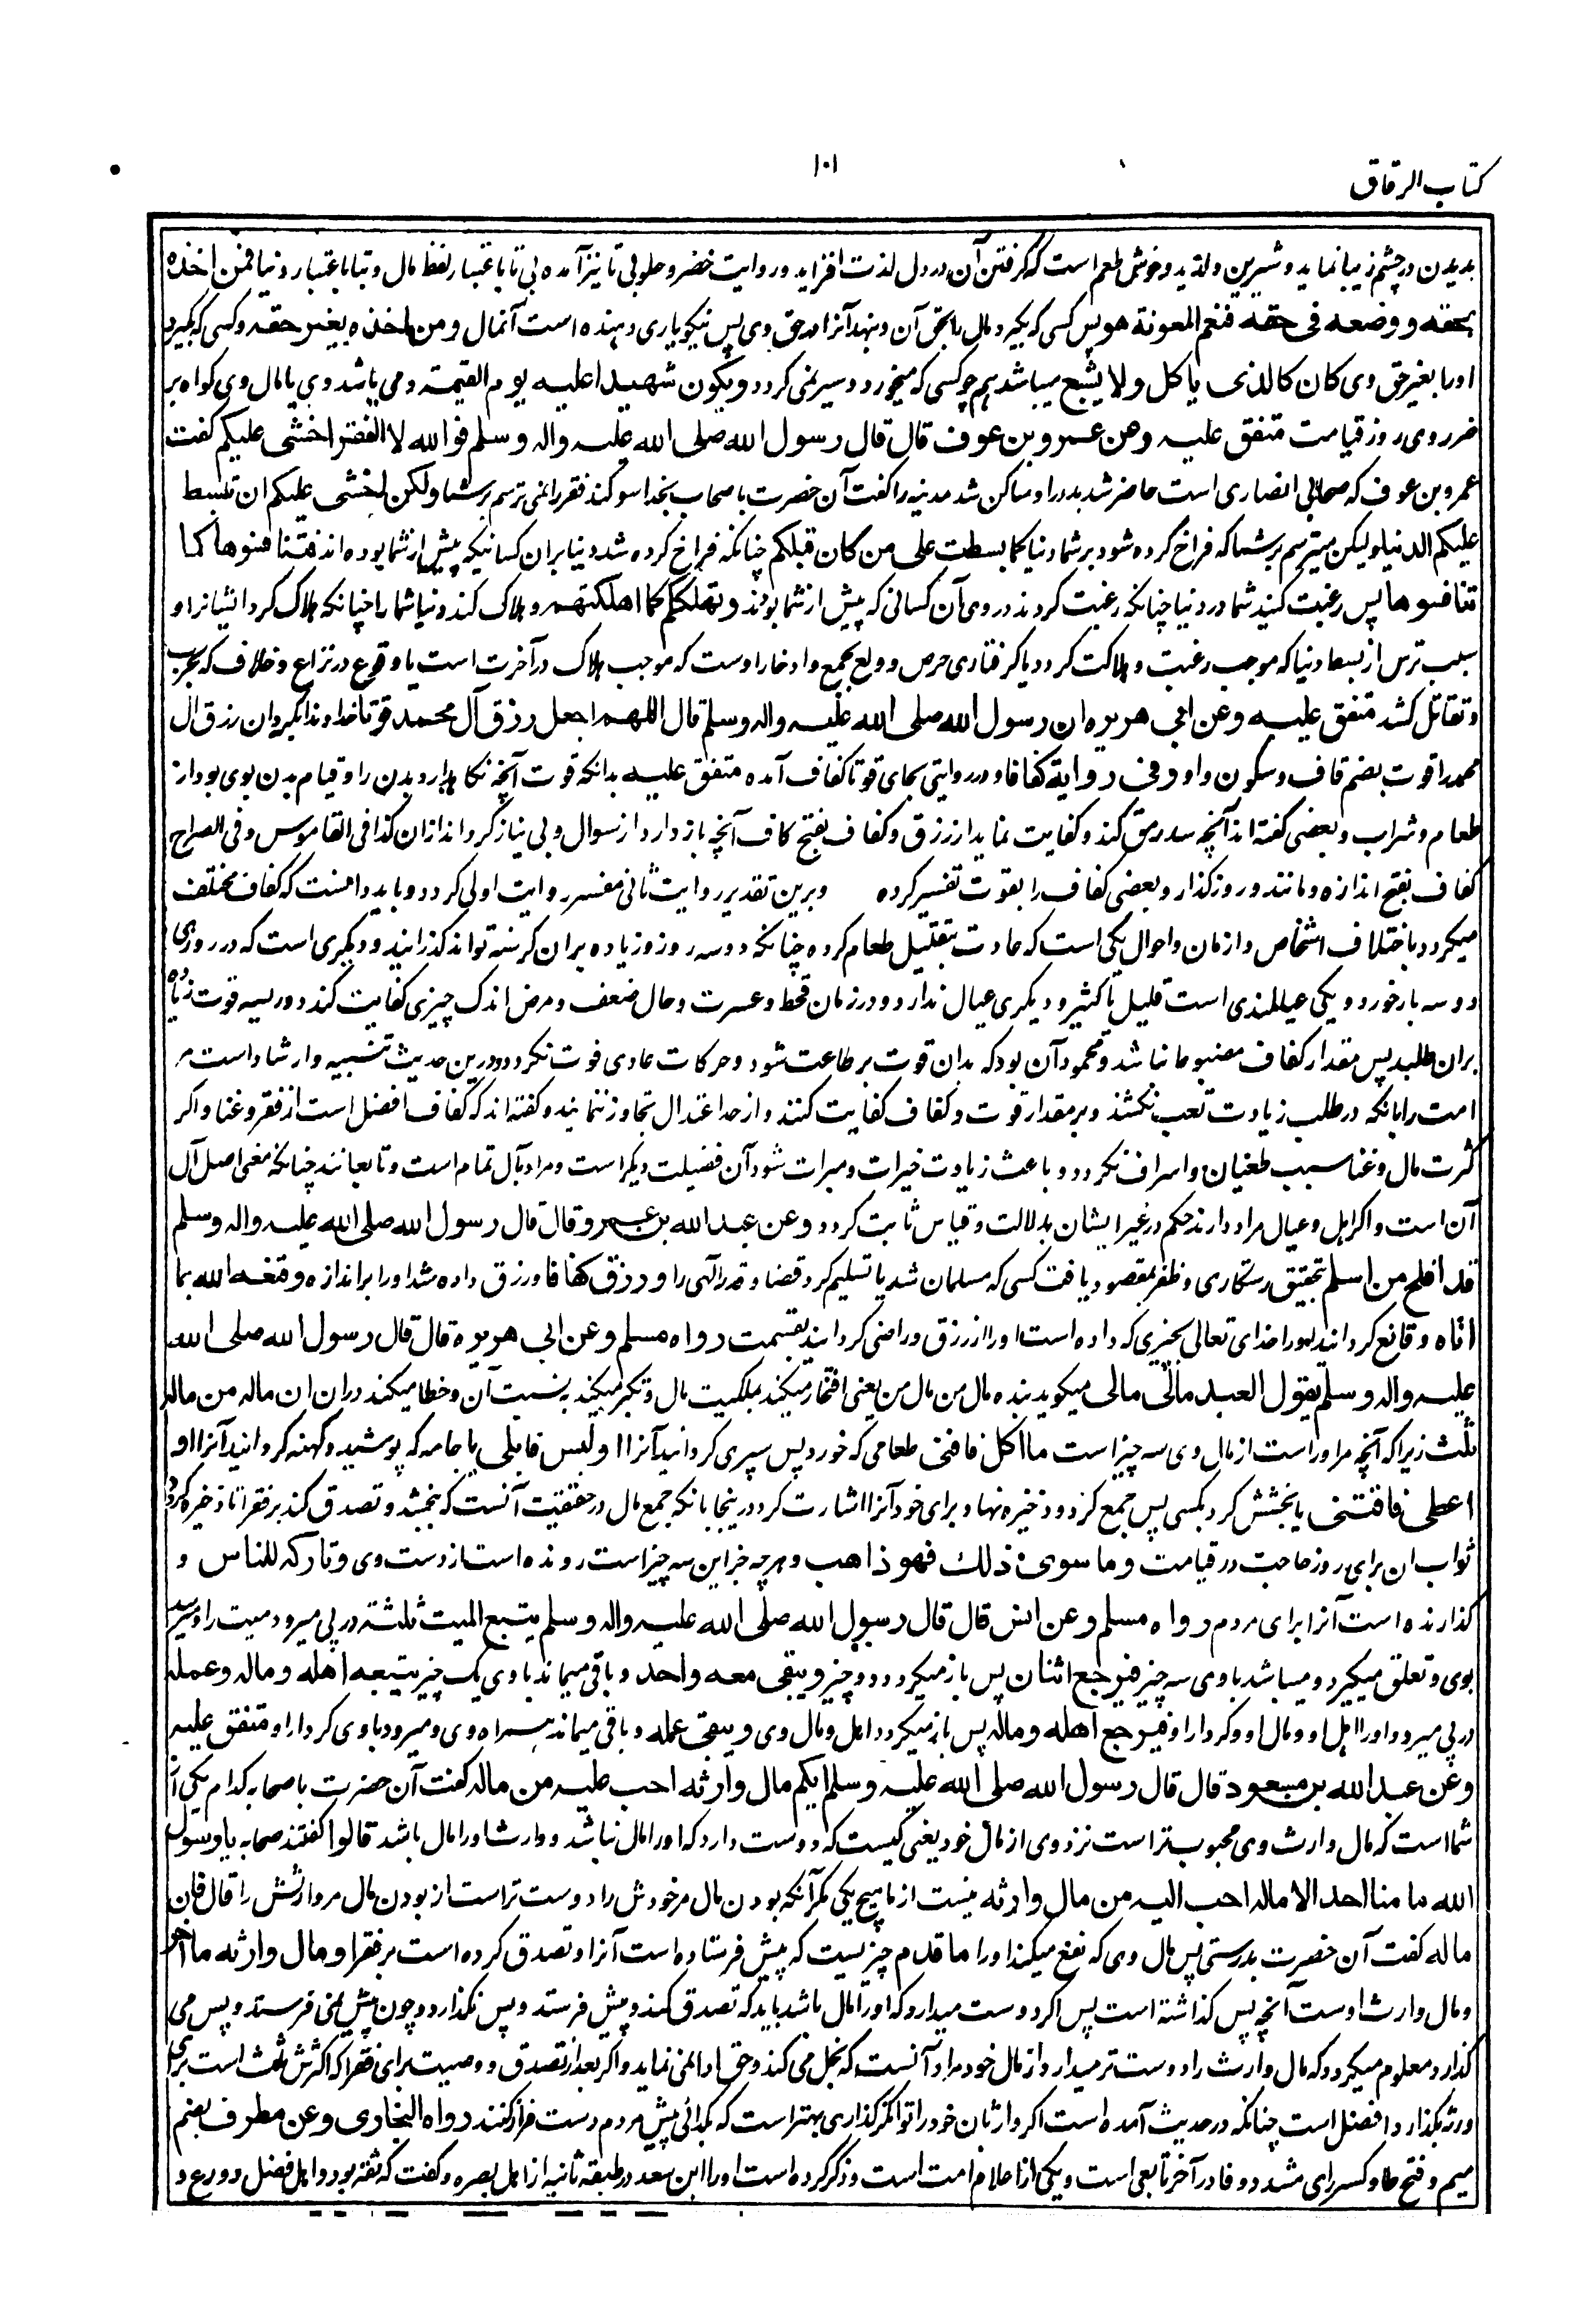 کتاب الرقاق
۱۰۱
بدیدن در چشم زیبا نماید و شیرین و لذید و خوش طعم است که گرفتن آن در دل لذت افزاید و روایت خضر و حلو بی تا نیز آمده بی تا باعتبار لفظ مال و تبا باعتبار دنیا فمن اخذه
بحقه و وضعه فی حقه فنعم المعونة هو پس کسی که بگیرد مال را بحق آن و بنهد آنرا در حق وی پس نیکو یاری دهنده است آنمال و من اخذه بغیر حقه و کسی که بگیرد
او را بغیر حق وی کان کالذی یاکل و لا یشبع میباشد همچو کسی که میخورد و سیر نمی گردد و یکون شهیدا علیه یوم القیمة و می باشد وی یا مال وی گواه بر
ضرر وی روز قیامت متفق علیه و عن عمرو بن عوف قال قال رسول الله صلی الله علیه واله وسلم فو الله لا الفقر اخشی علیکم گفت
عمرو بن عوف که صحابی انصاری است حاضر شد بدر را و ساکن شد مدینه را گفت آن حضرت باصحاب بخدا سوگند فقر را نمی ترسم بر شما ولکن اخشی علیکم ان تبسط
علیکم الدنیا ولیکن میترسم بر شما که فراخ کرده شود بر شما دنیا کما بسطت علی من کان قبلکم چنانکه فراخ کرده شد دنیا بران کسانیکه پیش از شما بوده اند فتنافسوها کما
تنافسوها پس رغبت کنید شما در دنیا چنانکه رغبت کردند در وی آن کسانی که پیش از شما بودند و تهلککم کما اهلکتهم و هلاک کند دنیا شما را چنانکه هلاک کرد ایشانرا و
سبب ترس از بسط دنیا که موجب رغبت و هلاکت گردد یا گرفتاری حرص و ولع بجمع و ادخار اوست که موجب هلاک در آخرت است یا وقوع در نزاع و خلاف که بحرب
و تقاتل کشد متفق علیه و عن ابی هریره ان رسول الله صلی الله علیه واله وسلم قال اللهم اجعل رزق آل محمد قوتا خداوندا بگردان رزق آل
محمد را قوت بضم قاف و سکون واو و فی روایة کفافا و در روایتی بجای قوتا کفاف آمده متفق علیه بدانکه قوت آنچه نگاهدارد بدن را و قیام بدن بوی بود از
طعام و شراب و بعضی گفته اند آنچه سد رمق کند و کفایت نماید از رزق و کفاف بفتح کاف آنچه باز دارد از سوال و بی نیاز گرداند ازان کذا فی القاموس و فی الصراح
کفاف بفتح اندازه و مانند و روزگذار و بعضی کفاف را بقوت تفسیر کرده و برین تقدیر روایت ثانی مفسر روایت اولی گردد و باید دانست که کفاف مختلف
میگردد باختلاف اشخاص و ازمان و احوال یکی است که عادت بتقلیل طعام کرده چنانکه دو سه روز و زیاده بران گرسنه تواند گذرانید و دیگری است که در روزی
دو سه بار خورد و یکی عیالمندی است قلیل یا کثیر و دیگری عیال ندارد و در زمان قحط و عسرت و حال ضعف و مرض اندک چیزی کفایت کند و در قوت زیاده
بران طلبد پس مقدار کفاف مضبوط نباشد و محمود آن بود که بدان قوت بر طاعت شود و حرکات عادی فوت نگردد و درین حدیث تنبیه و ارشاد است مر
امت را بانکه در طلب زیادت تعب نکشند و بر مقدار قوت و کفاف کفایت کنند و از حد اعتدال تجاوز ننمایند و گفته اند که کفاف افضل است از فقر و غنا و اگر
کثرت مال و غنا سبب طغیان و اسراف نگردد و باعث زیادت خیرات و مبرات شود آن فضیلت دیگر است و مراد بآل تمام است و تابعانند چنانکه معنی اصل آل
آن است و اگر اهل و عیال مراد دارند حکم در غیر ایشان بدلالت و قیاس ثابت گردد و عن عبد الله بن عمرو قال قال رسول الله صلی الله علیه واله وسلم
قد افلح من اسلم بتحقیق رستگاری و ظفر بمقصود یافت کسی که مسلمان شد یا تسلیم کرد قضا و قدر الهی را و رزق کفافا و رزق داده شد او را بر اندازه و قنعه الله بما
اتاه و قانع گردانید او را خدای تعالی بچیزی که داده است او را از رزق و راضی گردانید بقسمت رواه مسلم و عن ابی هریره قال قال رسول الله صلی الله
علیه واله وسلم یقول العبد مالی مالی میگوید بنده مال من مال من یعنی افتخار میکند بملکیت مال و تکبر میکند به نسبت آن و خطا میکند دران ان ماله من ماله
ثلث زیرا که آنچه مر او راست از مال وی سه چیز است ما اکل فافنی طعامی که خورد پس سپری گردانید آنرا او لبس فابلی یا جامه که پوشید و کهنه گردانید آنرا او
اعطی فاقتنی یا بخشش کرد بکسی پس جمع کرد و ذخیره نهاد برای خود آنرا اشارت کرد درینجا بانکه جمع مال در حقیقت آنست که بخشد و تصدق کند بر فقرا تا ذخیره گردد
ثواب ان برای روز حاجت در قیامت و ما سوی ذلک فهو ذاهب و هرچه جز این سه چیز است رونده است از دست وی و تارکه للناس و
گذارنده است آنرا برای مردم رواه مسلم و عن انس قال قال رسول الله صلی الله علیه واله وسلم یتبع المیت ثلثة در پی میرود میت را و میرسد
بوی و تعلق میگیرد و میباشد باوی سه چیز فیرجع اثنان پس باز میگردد دو چیز و یبقی معه واحد و باقی میماند باوی یک چیز یتبعه اهله و ماله و عمله
در پی میرود او را اهل او و مال او و کردار او فیرجع اهله و ماله پس باز میگردد اهل و مال وی و یبقی عمله و باقی میماند همراه وی و میرود باوی کردار او متفق علیه
و عن عبد الله بن مسعود قال قال رسول الله صلی الله علیه وسلم ایکم مال وارثه احب علیه من ماله گفت آن حضرت با صحابه کدام یکی از
شما است که مال وارث وی محبوب تر است نزد وی از مال خود یعنی کیست که دوست دارد که او را مال نباشد و وارث او را مال باشد قالوا گفتند صحابه یا رسول
الله ما منا احد الا ماله احب الیه من مال وارثه نیست از ما هیچ یکی مگر آنکه بودن مال مر خودش را دوست تر است از بودن مال مر وارثش را قال فان
ماله گفت آن حضرت بدرستی پس مال وی که نفع میکند او را ما قدم چیزیست که پیش فرستاده است آنرا و تصدق کرده است بر فقرا و مال وارثه ما اخر
و مال وارث اوست آنچه پس گذاشته است پس اگر دوست میدارد که او را مال باشد باید که تصدق کند و پیش فرستد و پس نگذارد و چون پیش نمی فرستد و پس می
گذارد معلوم میگردد که مال وارث را دوست تر میدارد از مال خود مراد آنست که بخل می کند و حق ادا نمی نماید و اگر بعد از تصدق و وصیت برای فقرا که اکثرش ثلث است برای
ورثه بگذارد افضل است چنانکه در حدیث آمده است اگر وارثان خود را توانگر گذاری بهتر است که بگدائی پیش مردم دست فراز کنند رواه البخاری و عن مطرف بضم
میم و فتح طا و کسر رای مشدد و فا در آخر تابعی است و یکی از اعلام امت است و ذکر کرده است او را ابن سعد در طبقه ثانیه از اهل بصره و گفت که ثقه بود و اهل فضل و ورع و